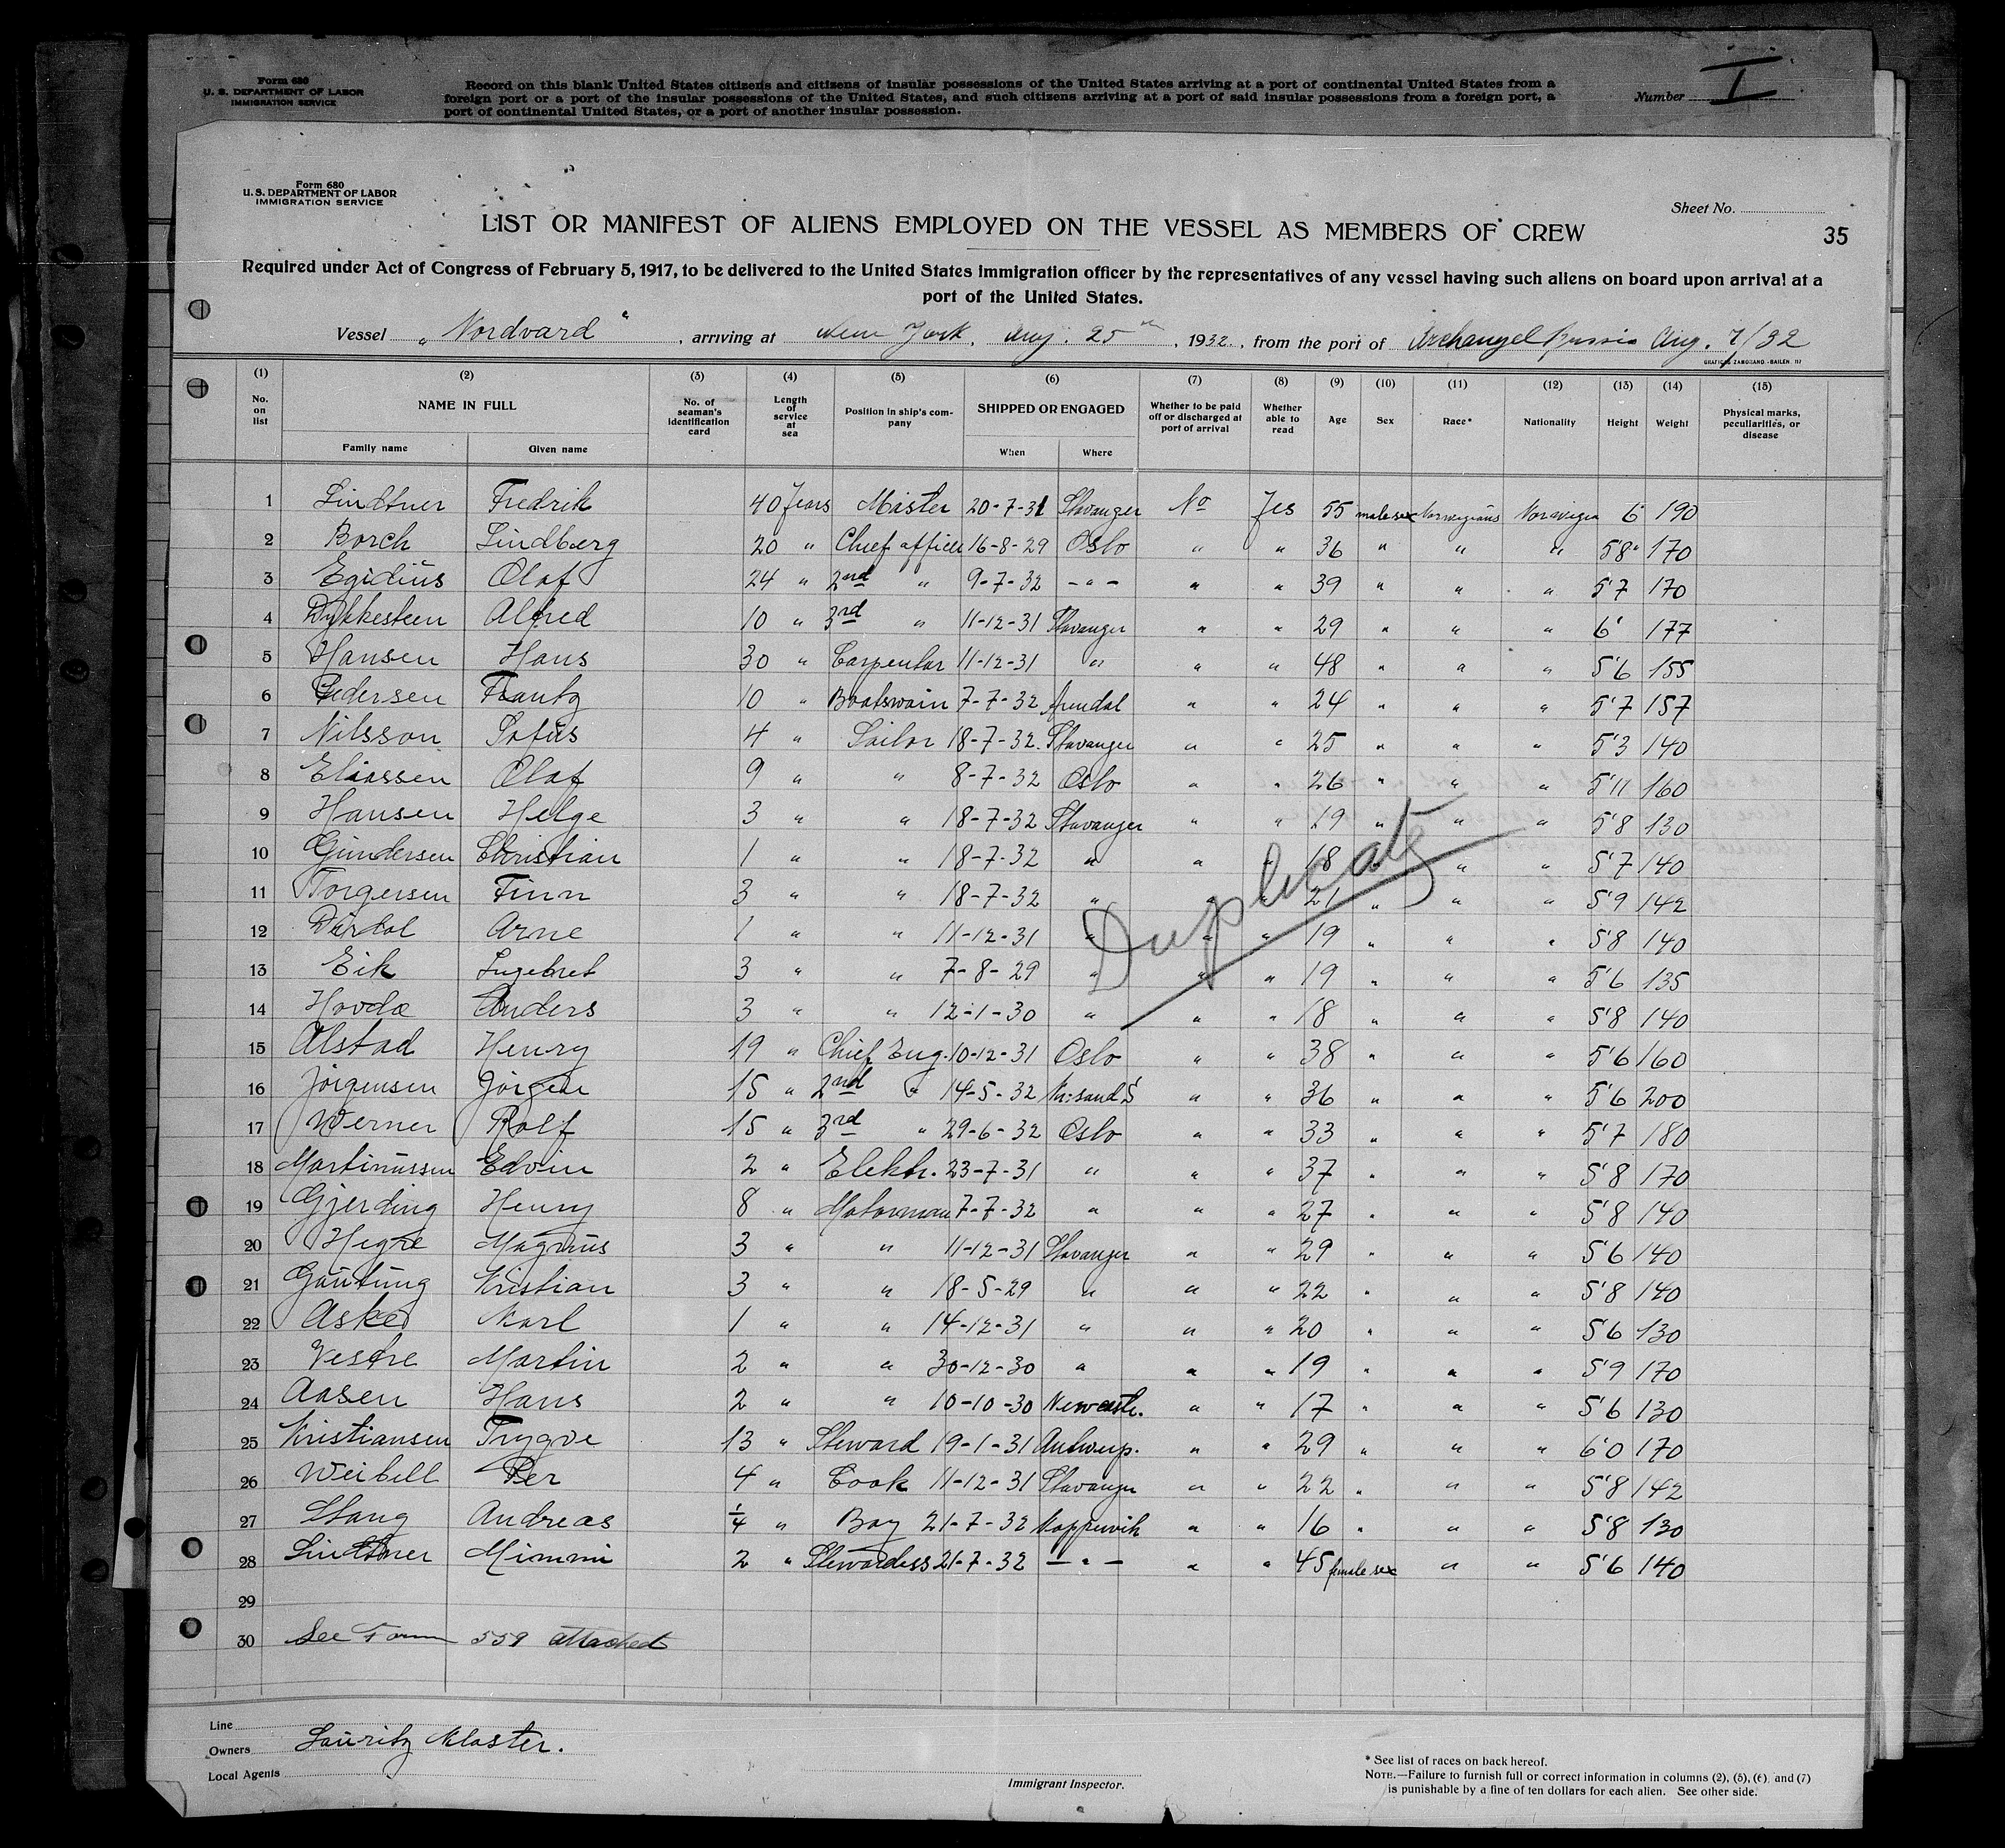 Form 680
U. S. DEPARTMENT OF LABOR
IMMIGRATION SERVICE
Record on this blank United States citizens and citizens of insular possessions of the United States arriving at a port of continental United States from a
foreign port or a port of the insular possessions of the United States, and such citizens arriving at a port of said insular possessions from a foreign port, a
port of continental United States, or a port of another insular possession.
Number I
Form 680
U. S. DEPARTMENT OF LABOR
IMMIGRATION SERVICE
Sheet No.
35
LIST OR MANIFEST OF ALIENS EMPLOYED ON THE VESSEL AS MEMBERS OF CREW
Required under Act of Congress of February 5, 1917, to be delivered to the United States immigration officer by the representatives of any vessel having such aliens on board upon arrival at a
port of the United States.
Vessel „Nordvard“, arriving at New York, Aug. 25th, 1932, from the port of Archangel Russia Aug. 7/32
(1) (2) (3) (4) (5) (6) (7) (8) (9) (10) (11) (12) (13) (14) (15)
No. on list NAME IN FULL Family name Given name No. of seaman's identification card Length of service at sea Position in ship's company SHIPPED OR ENGAGED When Where Whether to be paid off or discharged at port of arrival Whether able to read Age Sex Race* Nationality Height Weight Physical marks, peculiarities, or disease
1 Lindtner Fredrik 40 Years Master 20-7-31 Stavanger No Yes 55 male sex Norwegians 6' 190
2 Borch Lindberg 20 " Chief officer 16-8-29 Oslo " " 36 " " " 5'8" 170
3 Egidius Olaf 24 " 2nd " 9-7-32 -"- " " 39 " " " 5'7 170
4 Dykkesteen Alfred 10 " 3rd " 11-12-31 Stavanger " " 29 " " " 6' 177
5 Hansen Hans 30 " Carpentar 11-12-31 " " " 48 " " " 5'6 155
6 Pedersen Frantz 10 " Boatswain 7-7-32 Arendal " " 24 " " " 5'7 157
7 Nilsson Sofus 4 " Sailor 18-7-32 Stavanger " " 25 " " " 5'3 140
8 Eliassen Olaf 9 " " 8-7-32 Oslo " " 26 " " " 5'11 160
9 Hansen Helge 3 " " 18-7-32 Stavanger " " 19 " " " 5'8 130
10 Gundersen Christian 1 " " 18-7-32 " " " 18 " " " 5'7 140
11 Torgersen Finn 3 " " 18-7-32 " " " 21 " " " 5'9 142
12 Dirdal Arne 1 " " 11-12-31 " " " 19 " " " 5'8 140
13 Eik Ingebret 3 " " 7-8-29 " " " 19 " " " 5'6 135
14 Hovda Anders 3 " " 12-1-30 " " " 18 " " " 5'8 140
15 Alstad Henry 19 " Chief Eng. 10-12-31 Oslo " " 38 " " " 5'6 160
16 Jörgensen Jörgen 15 " 2nd " 14-5-32 Kr:sand S " " 36 " " " 5'6 200
17 Werner Rolf 15 " 3rd " 29-6-32 Oslo " " 33 " " " 5'7 180
18 Martinussen Edvin 2 " Elektr. 23-7-31 " " " 37 " " " 5'8 170
19 Gjerding Henry 8 " Motorman 7-7-32 " " " 27 " " " 5'8 140
20 Hegre Magnus 3 " " 11-12-31 Stavanger " " 29 " " " 5'6 140
21 Gautung Kristian 3 " " 18-5-29 " " " 22 " " " 5'8 140
22 Aske Karl 1 " " 14-12-31 " " " 20 " " " 5'6 130
23 Vestre Martin 2 " " 30-12-30 " " " 19 " " " 5'9 170
24 Aasen Hans 2 " " 10-10-30 Newcastle. " " 17 " " " 5'6 130
25 Kristiansen Trygve 13 " Steward 19-1-31 Antwerp. " " 29 " " " 6'0 170
26 Weibell Per 4 " Cook 11-12-31 Stavanger " " 22 " " " 5'8 142
27 Stang Andreas 1/4 " Boy 21-7-32 Kopervik " " 16 " " " 5'8 130
28 Lindtner Mimmi 2 " Stewardess 21-7-32 -"- " " 45 female sex " " 5'6 140
29
30 See Form 559 attached
Duplicate
Line
Owners Lauritz Kloster.
Local Agents
Immigrant Inspector.
* See list of races on back hereof.
NOTE.—Failure to furnish full or correct information in columns (2), (5), (6) and (7)
is punishable by a fine of ten dollars for each alien. See other side.